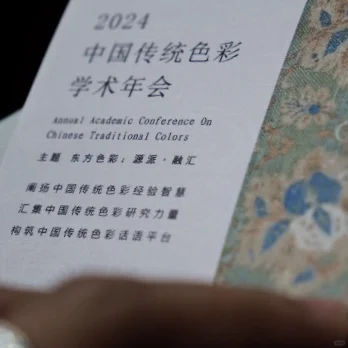 2024
中国传统色彩
学术年会
Annual Academic Conference On
Chinese Traditional Colors
主题 东方色彩：源派·融汇
阐扬中国传统色彩经验智慧
汇集中国传统色彩研究力量
构筑中国传统色彩话语平台